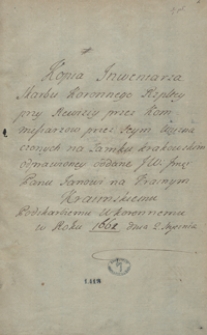 Kopia Inwentarza
Skarbu Koronnego Rzpltey
przy Rewizyi przez Kom
missarzow przez Seym
czonych na Zamku krakowskim
odprawioney oddane J.W. Jmć
Panu Janowi na Krasnym
Krasinskiemu
Podskarbiemu W. koronnemu
w Roku 1662 dnia 2 Stycznia